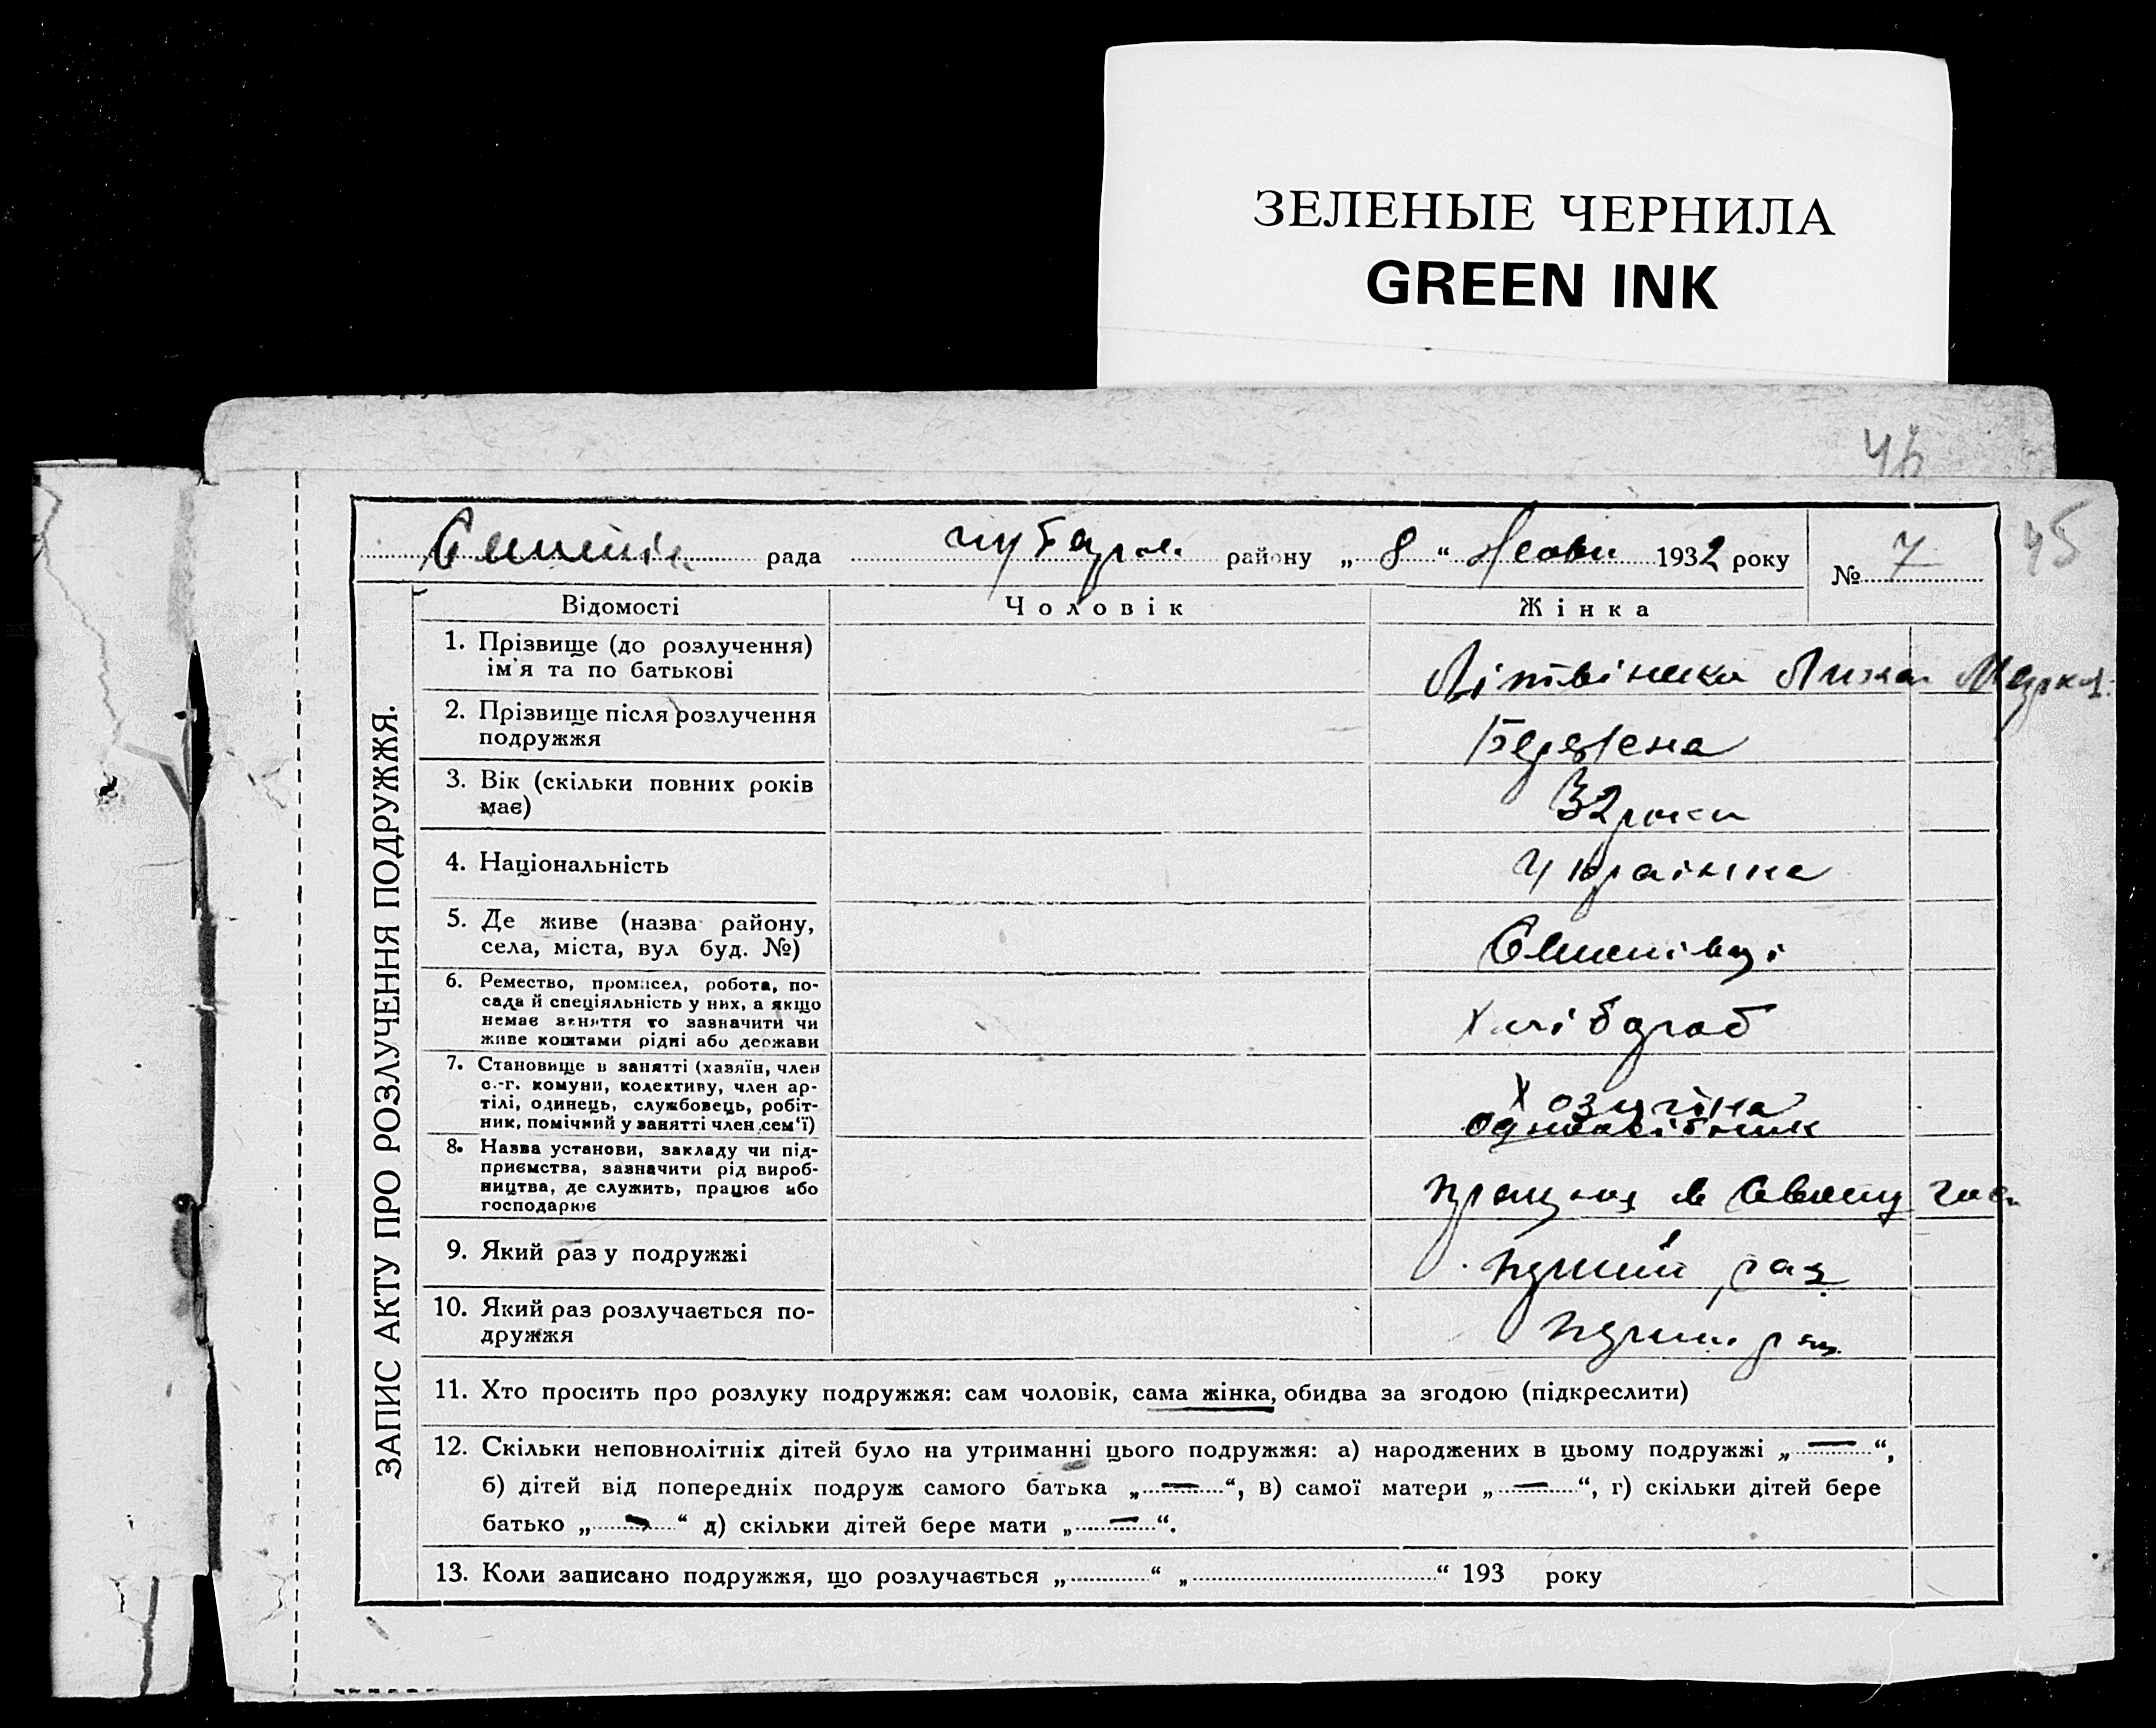 ЗЕЛЕНЫЕ ЧЕРНИЛА
GREEN INK
45
рада Чубарів. району „ 8 “ 1932 року № 7
ЗАПИС АКТУ ПРО РОЗЛУЧЕННЯ ПОДРУЖЖЯ.
Відомості Чоловік Жінка
1. Прізвище (до розлучення)
ім'я та по батькові
Літвінека
2. Прізвище після розлучення
подружжя
3. Вік (скільки повних років
має)
32 роки
4. Національність
Украінка
5. Де живе (назва району,
села, міста, вул буд. №)
6. Ремество, промисел, робота, по-
сада й спеціяльність у них, а якщо
немає заняття то зазначити чи
живе коштами рідні або держави
Хлібороб
7. Становище в занятті (хазяїн, член
с.-г. комуни, колективу, член ар-
тілі, одинець, службовець, робіт-
ник, помічний у занятті член сем'ї)
одноосібник
8. Назва установи, закладу чи під-
приємства, зазначити рід вироб-
ництва, де служить, працює або
господарює
працює в своему гос.
9. Який раз у подружжі
перший раз
10. Який раз розлучається по-
дружжя
перши раз
11. Хто просить про розлуку подружжя: сам чоловік, сама жінка, обидва за згодою (підкреслити)
12. Скільки неповнолітніх дітей було на утриманні цього подружжя: а) народжених в цьому подружжі „ — “,
б) дітей від попередніх подруж самого батька „ — “, в) самої матери „ — “, г) скільки дітей бере
батько „ — “ д) скільки дітей бере мати „ — “.
13. Коли записано подружжя, що розлучається „ “ „ “ 193 року